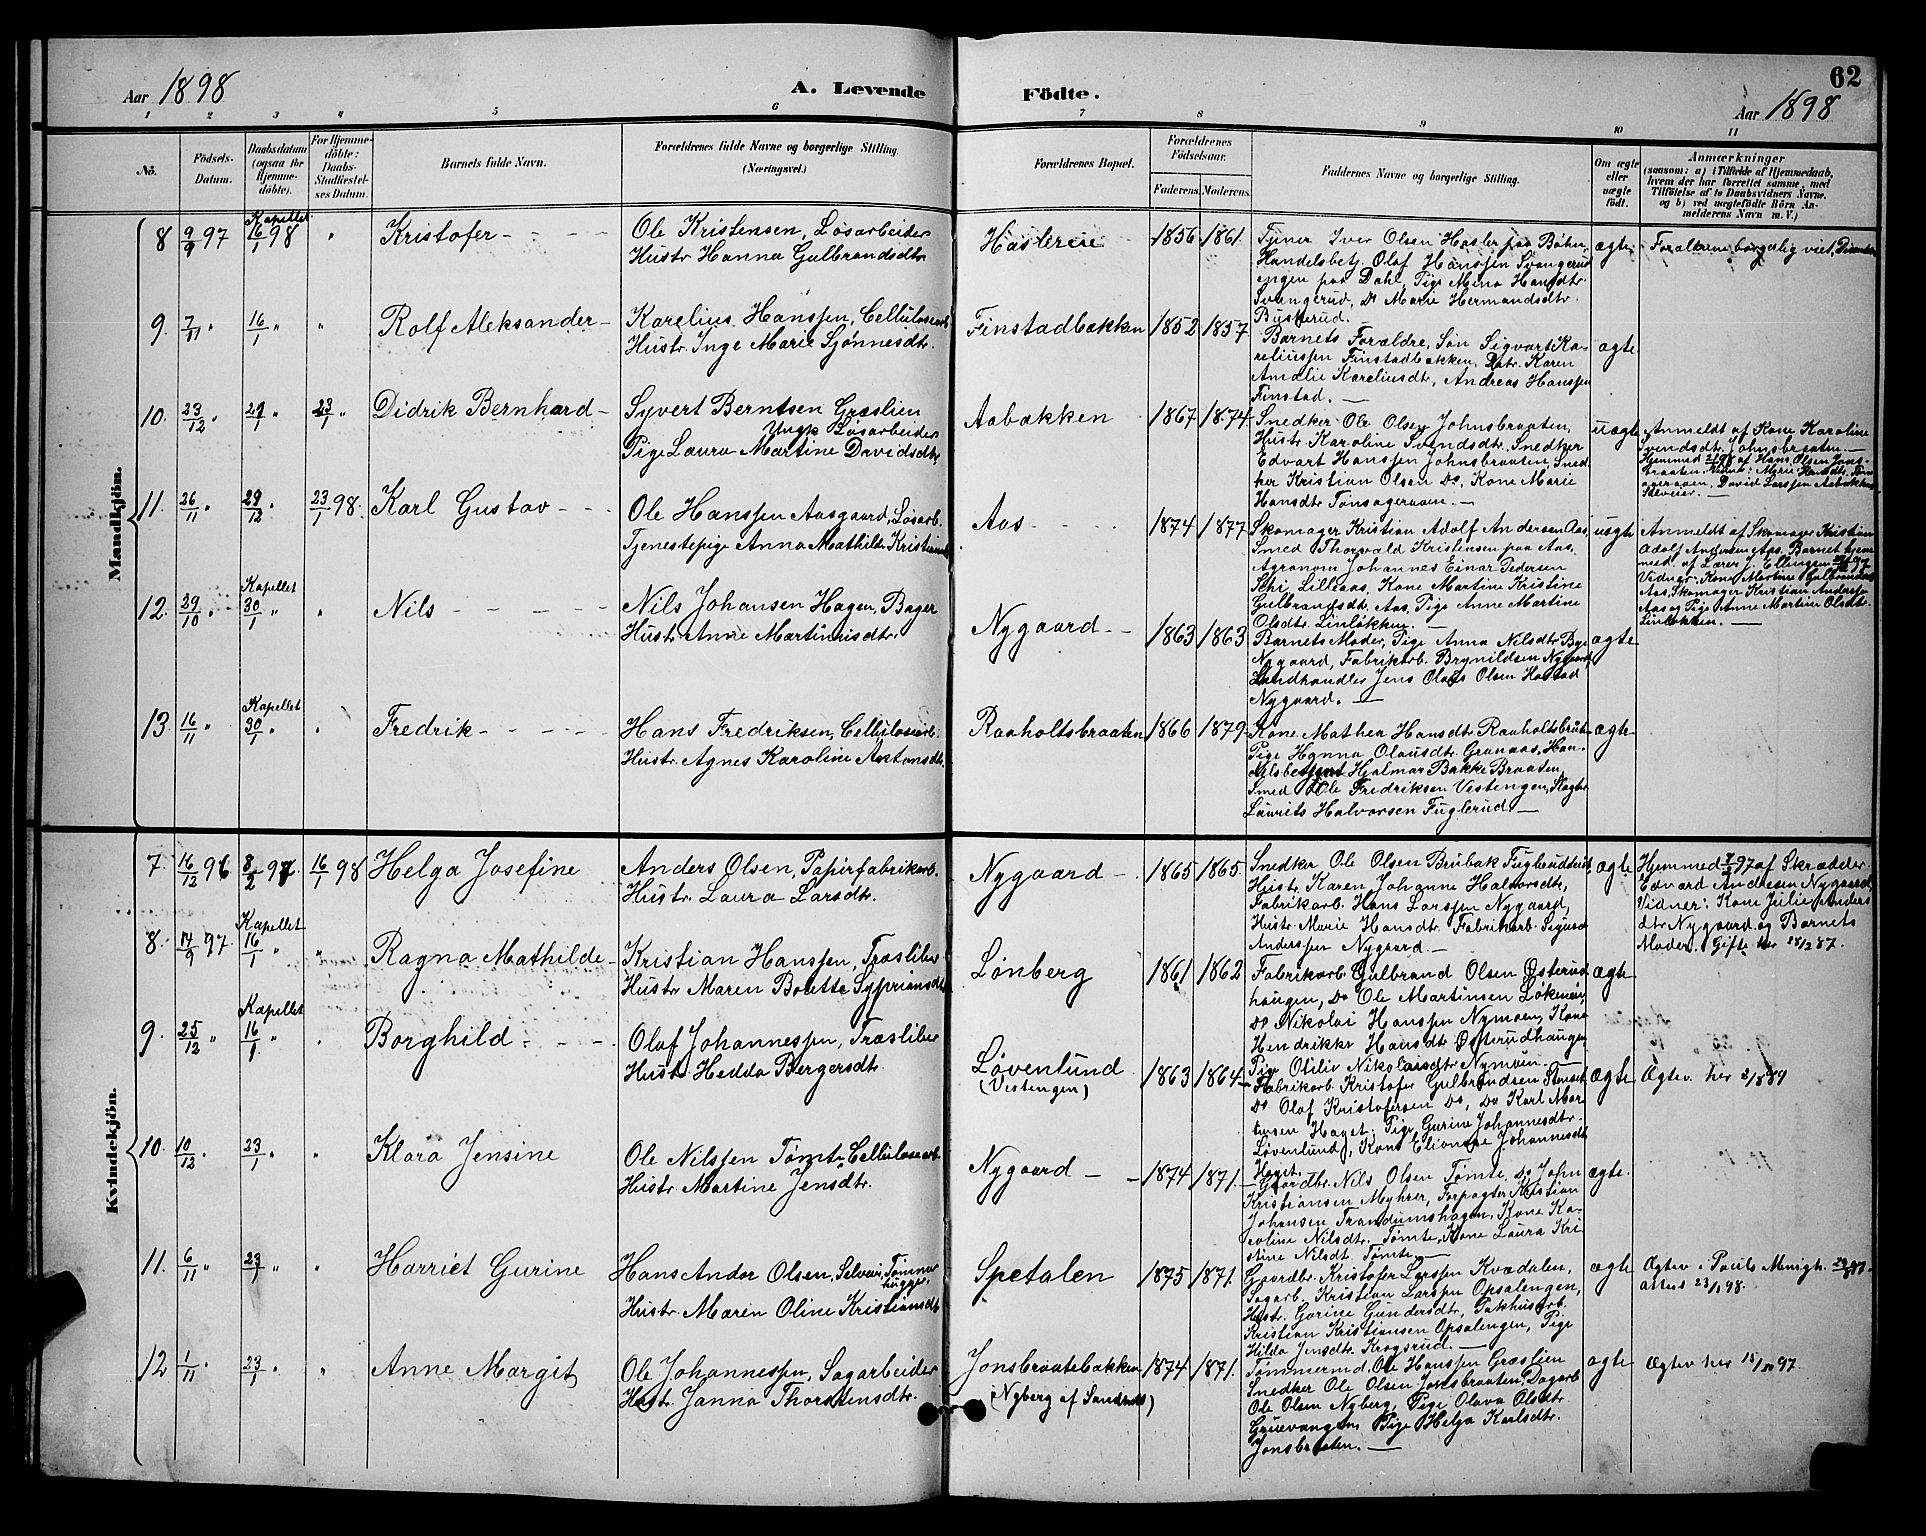 62
Aar 1898
A. Levende Födte.
Aar 1898
1 2 3 4 5 6 7 8 9 10 11
No.
Födsels-
Datum.
Daabsdatum
(ogsaa for
Hjemme-
döbte).
For Hjemme-
döbte:
Daabs
Stadfæstel-
ses Datum.
Barnets fulde Navn.
Forældrenes fulde Navne og borgerlige Stilling.
(Næringsvei.)
Forældrenes Bopæl.
Forældrenes
Födselsaar.
Faderens. Moderens.
Faddernes Navne og borgerlige Stilling.
Om ægte
eller
uægte
født.
Anmærkninger
(saasom: a) i Tilfælde af Hjemmedaab,
hvem der har forrettet samme, med
Tilföielse af to Daabsvidners Navne.
og b) ved uægtefödte Börn An-
melderens Navn m. V.)
Mandkjön.
Kapellet
8 9/9 97 16/1 98 " Kristofer
Ole Kristensen, Løsarbeider
Hustr. Hanna Gulbrandsdtr.
1856 1861
Tjener Iver Olsen Hasler paa Bøhn,
Handelsbetj. Olaf Hanssen Svangerud
engen paa Dahl, Pige Mina Hansdtr.
Svangerud, Do Marie Hermandsdtr.
Buskerud.
ægte
Forældrene borgerlig viet,
9. 7/11 " 16/1 " " Rolf Aleksander
Karelius Hanssen, Cellulosearb.
Hustr. Inge Marie Sjønnesdtr.
Finstadbakken 1852 1857
Barnets Forældre, Søn Sigvart Ka-
reliussen Finstadbakken, Datr. Karen
Amalie Kareliusdtr, Andreas Hanssen
Finstad.
ægte
10. 23/12 " 29/1 " 23/1 " Didrik Bernhard
Syvert Berntsen Græslien
Ungk. Løsarbeider
Pige Laura Martine Davidsdtr.
Aabakken 1867 1874
Snedker Ole Olsen Johnsbraaten,
Hustr. Karoline Svendsdtr. Snedker
Edvart Hanssen Johnsbraaten, Sned
ker Kristian Olsen Do, Kone Marie
Hansdtr Tønsageraaen.
uægte
Anmeldt af Kone Karoline
Svendsdt. Johnsbraaten.
David Larssen Aabakken
Selveier.
11. 26/11 " 29/12 " 23/1 98. Karl Gustav
Ole Hanssen Aasgaard, Løsarb.
Tjenestepige Anna Mathilde
Aas 1874 1877
Skomager Kristian Adolf Andersen Aas,
Smed Thorvald Kristensen paa Aas,
Agronom Johannes Einar Pedersen
Schi Lilleaas, Kone Martine Kristine
Gulbrandsdt. Aas, Pige Anne Martine
Olsdtr. Linløkken.
uægte
Anmeldt af Skomager Kristian
Adolf Andersen Aas. Barnet hjem
med. af Lærer J. Ellingsen
Vidner: Kone Martine
Aas, Skomager Kristian Anderssen
Aas og Pige Anne Martine Olsdtr.
Linløkken.
Kapellet
12. 29/10 " 30/1 " " Nils
Nils Johansen Hagen, Bager
Hustr. Anne Martinusdtr.
Nygaard 1863 1863
Barnets Moder, Pige Anna Nilsdtr Bye
Nygaard, Fabrikarb. Brynildsen Nygaard,
Landhandler Jens Olaus Olsen
Nygaard.
ægte
Kapellet
13. 16/11 " 30/1 " " Fredrik
Hans Fredriksen, Cellulosearb.
Hustr. Agnes Karoline Antonsdt.
Raaholtsbraaten 1866 1879
Kone Mathea Hansdtr Raaholtsbraat.
Pige Hanna Olausdtr. Granaas, Han-
delsbetjent Hjalmar Bakke Braaten,
Smed Ole Fredriksen Vestengen,
Laurits Halvorsen Fuglerud
ægte
Kvindekjön.
7. 16/12 96 8/2 97. 16/1 98 Helga Josefine
Anders Olsen, Papirfabrikarb.
Hustr. Laura Larsdtr.
Nygaard 1865 1865
Snedker Ole Olsen Brubak
Hustr. Karen Johanne Halvorsdtr,
Fabrikarb. Hans Larssen Nygaard,
Hustr. Marie Hansdtr. Fabrikarb. Sigurd
Anderssen Nygaard
ægte
Hjemmed 8/2 97 af Skrædder
Edvard Andresen Nygaard,
Vidner: Kone Julie Anders
dtr Nygaard og Barnets
Moder. Gifte her
Kapellet
8. 14/9 97 16/1 " " Ragna Mathilde
Kristian Hanssen, Træsliber
Hustr. Maren Bolette Syprians
Lønberg 1861 1862
Fabrikarb Gulbrand Olsen Østerud
haugen, Do Ole Martinsen
Do Nikolai Hanssen Nymoen, Kone
Hendrikke Hansdt Østerudhaugen
Pige Otilie Nikolaisdtr Nymoen.
ægte
Kapellet
9. 25/12 " 16/1 " " Borghild
Olaf Johannessen, Træsliber
Hustr. Hedda Bergersdtr.
Løvenlund
(Vestengen)
1863 1864
Fabrikarb. Kristofer Gulbrandsen
Do Olaf Kristofersen Do, Do Karl Mar
tinsen Haget. Pige Gurine Johannesdtr.
Løvenlund, Kone Elionore Johannesdt
Haget.
Ægte
Ægtev. her 2/8 89
10. 10/12 " 23/1 " " Klara Jensine
Ole Nilssen Tømte, Cellulosearb.
Hustr. Martine Jensdtr.
Nygaard 1874 1871
Gaardbr. Nils Olsen Tømte. Do John
Kristiansen Myhrer, Forpagter Kristian
Johansen Trandumshagen, Kone Ka-
roline Nilsdtr. Tømte, Kone Laura Kri
stine Nilsdt Tømte
ægte.
11. 6/11 " 23/1 " " Harriet Gurine
Hans Andor Olsen, Selveier, Tømmer
hugger,
Hustr. Maren Oline Kristiansdt
Spetalen 1875 1871.
Gaardbr. Kristofer Larssen Kvædalen,
Sagarb. Kristian Larssen Opsalengen,
Hustr. Gorine Gundersdtr, Pakhusarb.
Kristian Kristiansen Opsalengen, Pige
Hilda Jensdtr. Krogsrud.
ægte
Ægtev. i Pauls Menigh.
attest 23/1 98.
12 1/11 " 23/1 " " Anne Margit
Ole Johannessen, Sagarbeider
Hustr Janna Thorstensdtr.
Jonsbraatebakken
(Nyberg af Sandnes)
1874 1871.
Tømmermd. Ole Hanssen Græslien
Snedker Ole Olsen Jonsbraaten, Dagarb
Ole Olsen Nyberg, Pige Olava Olsdtr.
Gruevangen, Pige Helga Karlsdtr.
Jonsbraaten.
ægte
Ægtev her 15/10 97.